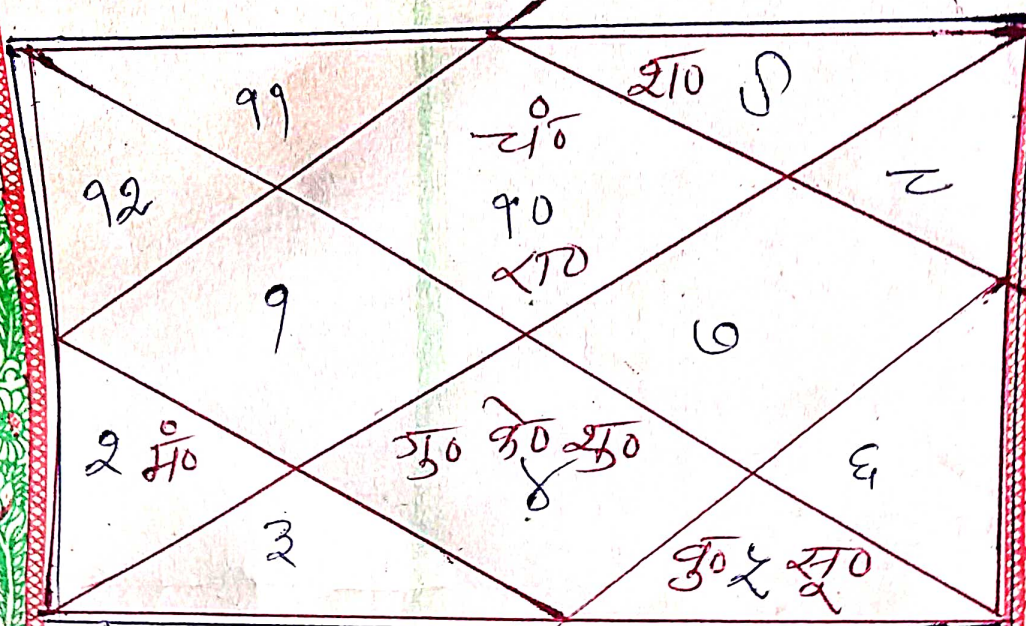 ११
शं० ९
चं०
१०
रा०
१२
८
१
७
२ मं०
गु० के० शु०
४
६
३
बु० ५ सू०